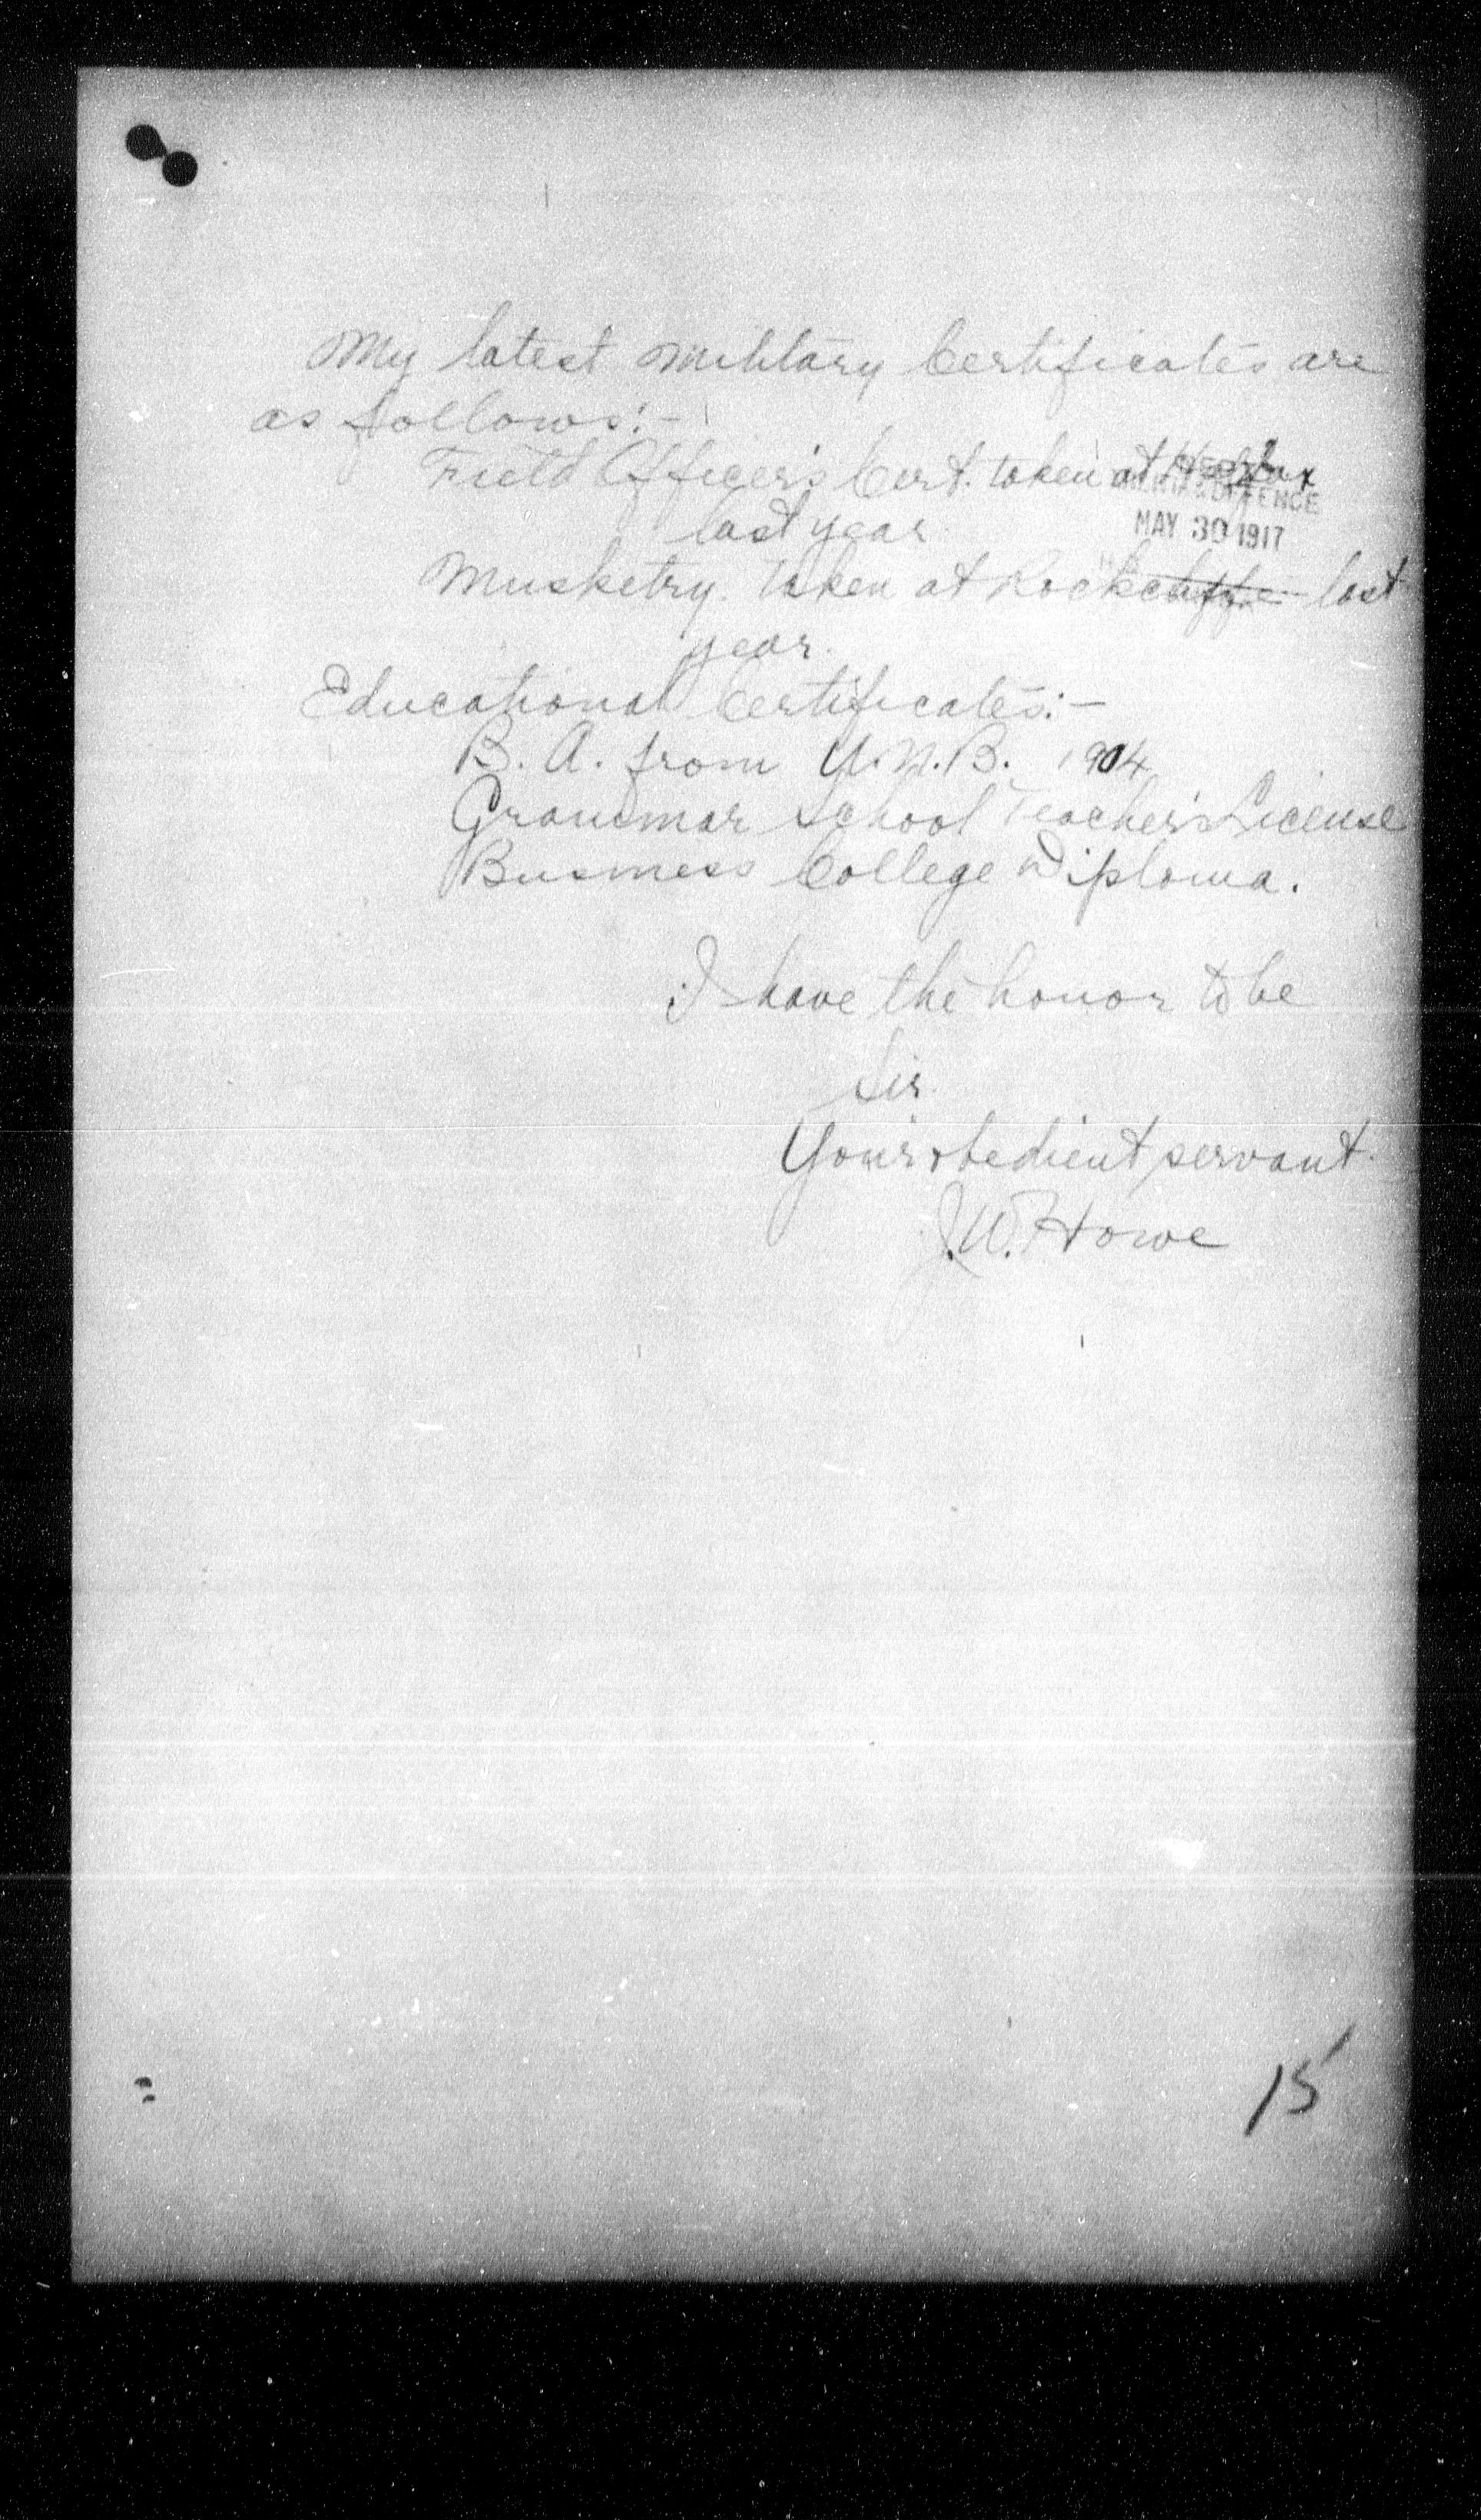 My latest military Certificates are
as follows:-
Field Officer's Cert. taken at Halifax
last year.
MILITIA & DEFENCE
MAY 30 1917
Musketry. taken at Rockcliffe last
year.
Educational Certificates:-
B. A. from U.N.B. 1904
Grammar School Teacher's License
Business College Diploma.
I have the honor to be
Sir.
Your obedient servant.
J.W. Howe
15